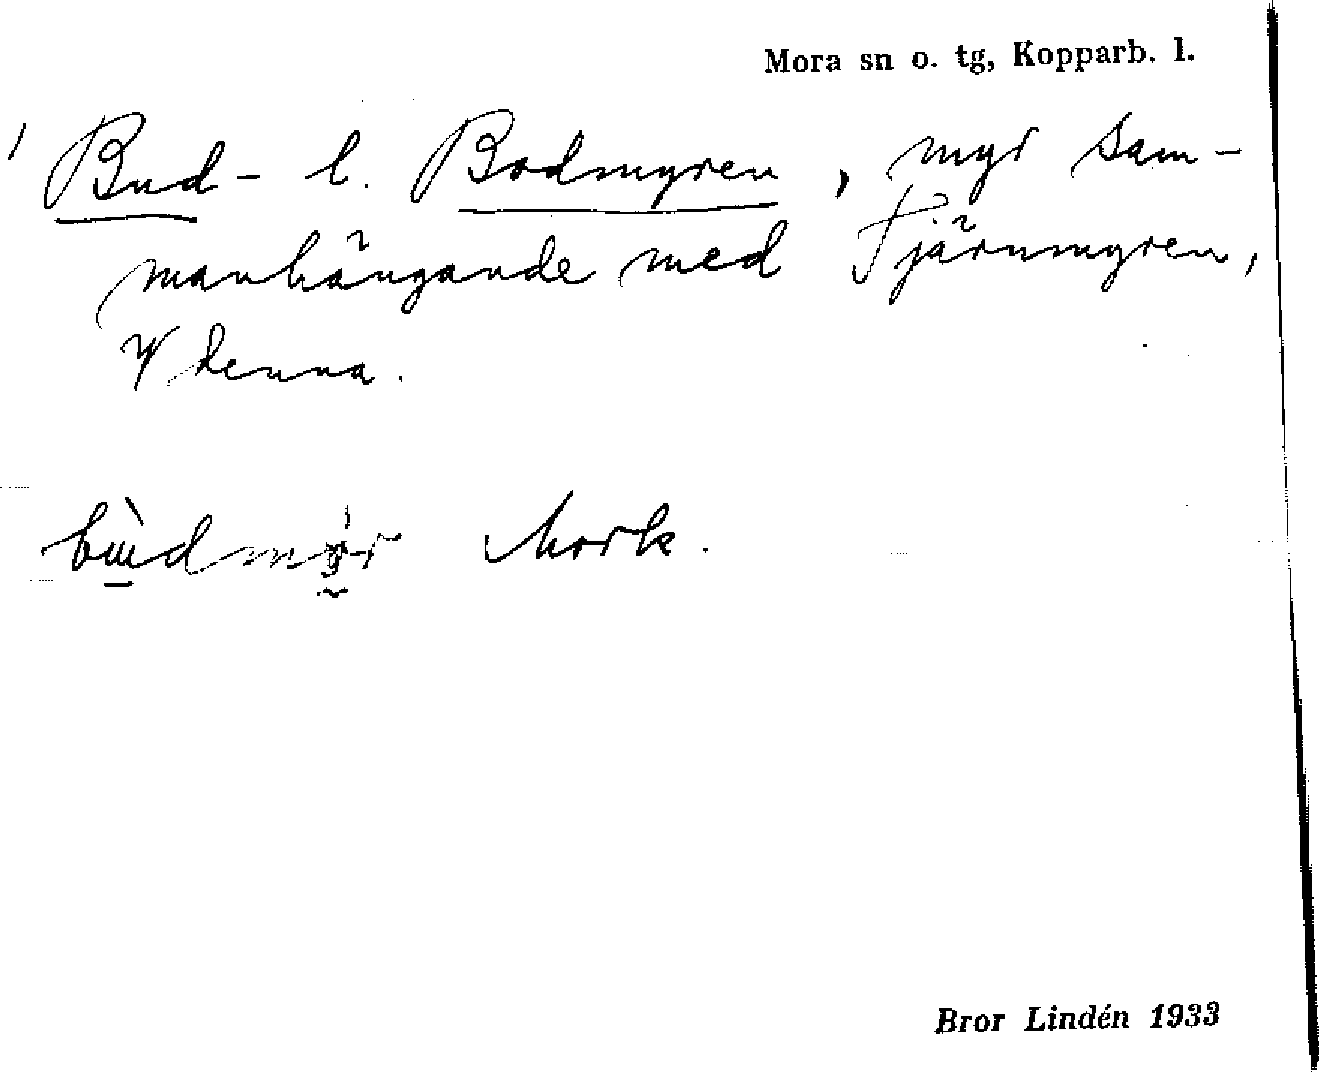 Mora sn o. tg, Kopparb. l.
Bud- l. Bodmyren, myr sam-
manhängande med Tjärnmyren,
V denna.
Mork.
Bror Lindén 1933